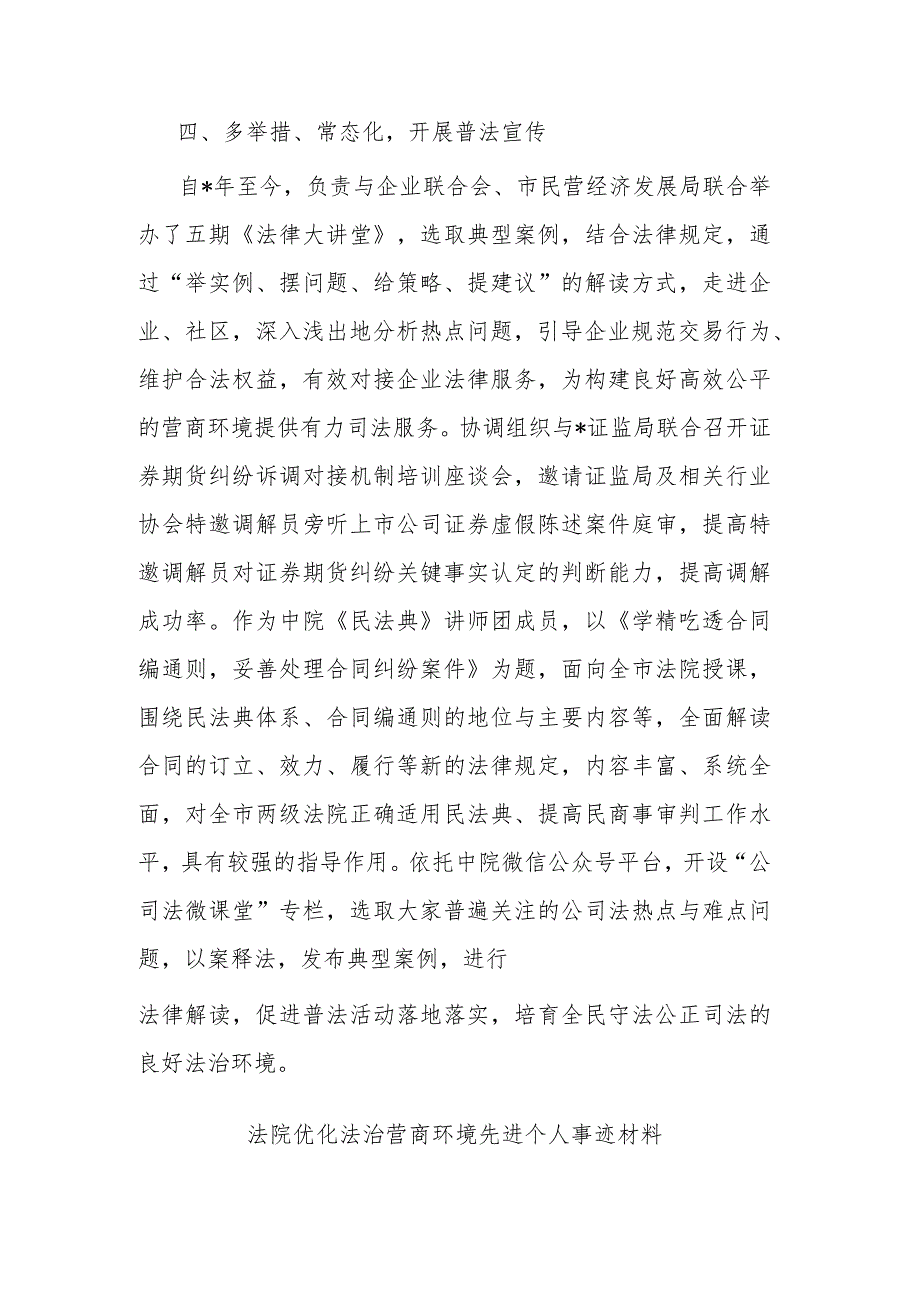 四、多举措、常态化，开展普法宣传
自*年至今，负责与企业联合会、市民营经济发展局联合举
办了五期《法律大讲堂》，选取典型案例，结合法律规定，通
过“举实例、摆问题、给策略、提建议”的解读方式，走进企
业、社区，深入浅出地分析热点问题，引导企业规范交易行为、
维护合法权益，有效对接企业法律服务，为构建良好高效公平
的营商环境提供有力司法服务。协调组织与*证监局联合召开证
券期货纠纷诉调对接机制培训座谈会，邀请证监局及相关行业
协会特邀调解员旁听上市公司证券虚假陈述案件庭审，提高特
邀调解员对证券期货纠纷关键事实认定的判断能力，提高调解
成功率。作为中院《民法典》讲师团成员，以《学精吃透合同
编通则，妥善处理合同纠纷案件》为题，面向全市法院授课，
围绕民法典体系、合同编通则的地位与主要内容等，全面解读
合同的订立、效力、履行等新的法律规定，内容丰富、系统全
面，对全市两级法院正确适用民法典、提高民商事审判工作水
平，具有较强的指导作用。依托中院微信公众号平台，开设“公
司法微课堂”专栏，选取大家普遍关注的公司法热点与难点问
题，以案释法，发布典型案例，进行
法律解读，促进普法活动落地落实，培育全民守法公正司法的
良好法治环境。
法院优化法治营商环境先进个人事迹材料